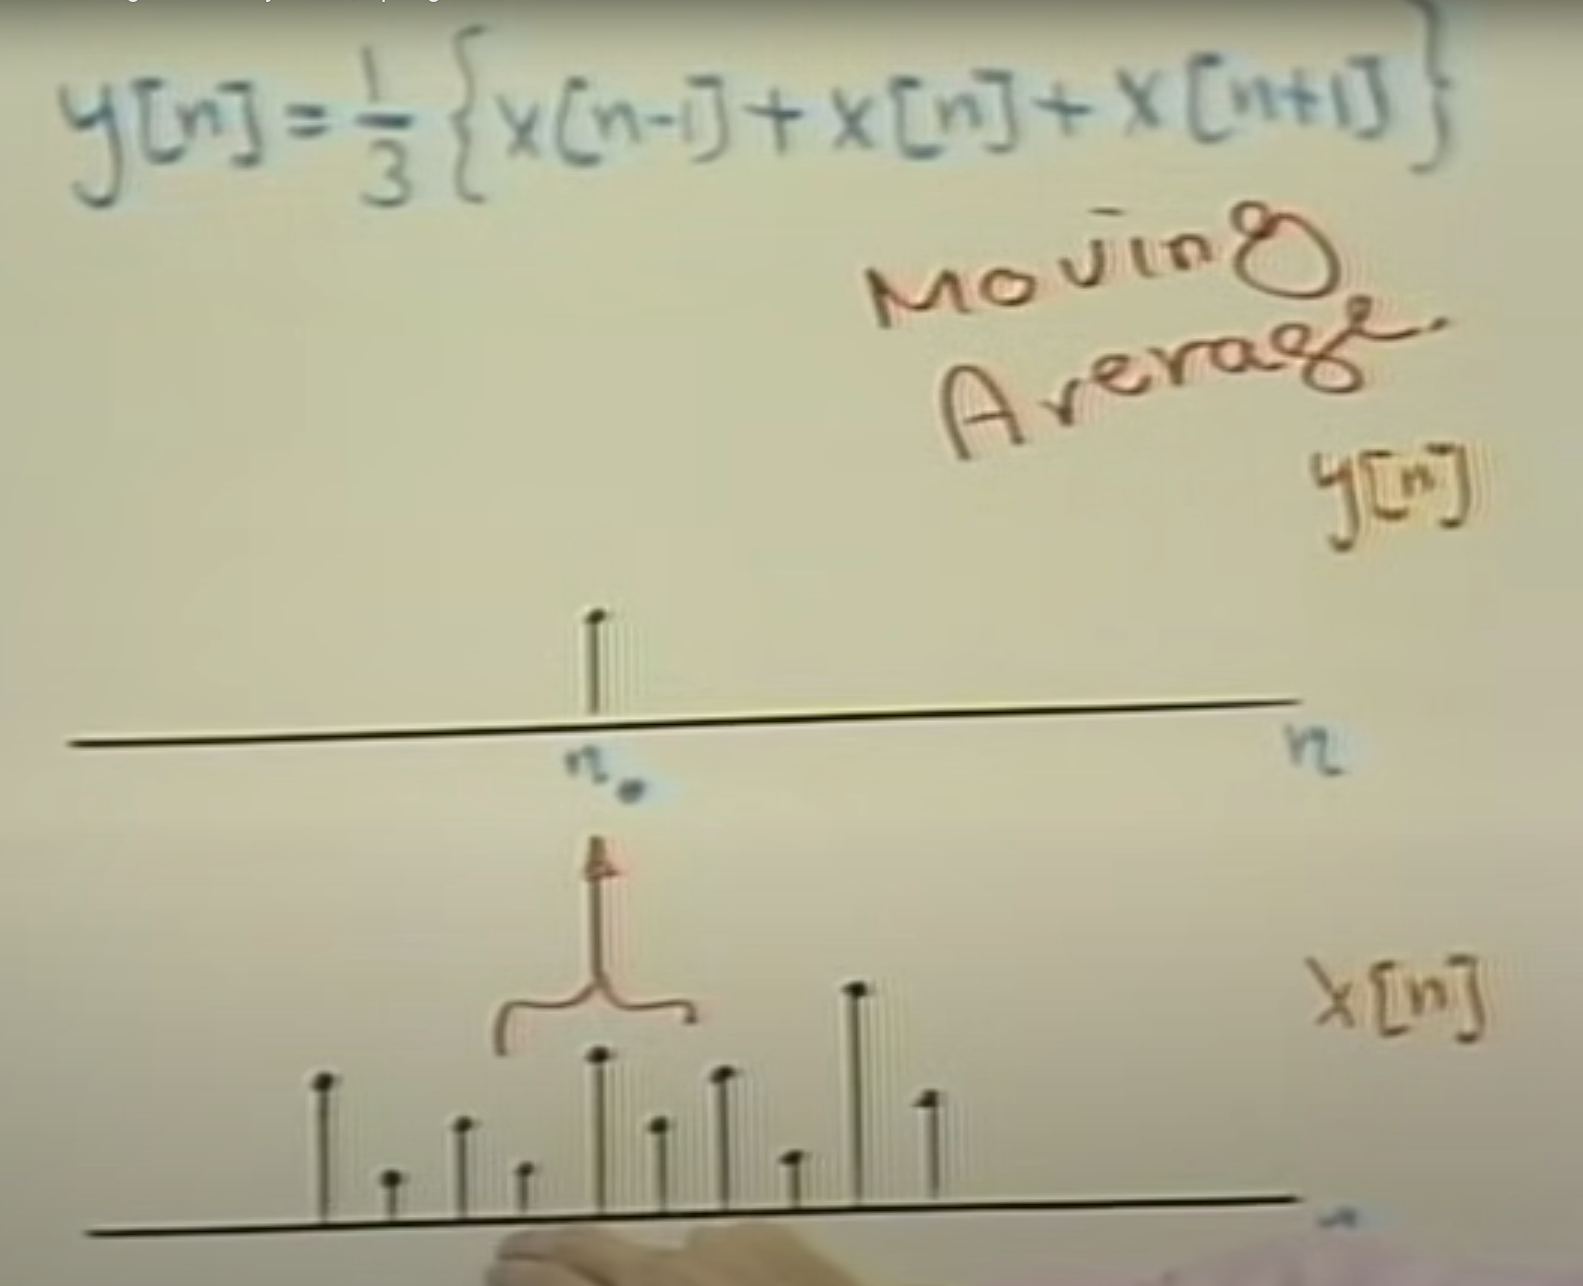 y[n] = 1/3 { x[n-1] + x[n] + x[n+1] }
Moving
Average
y[n]
n₀
n
x[n]